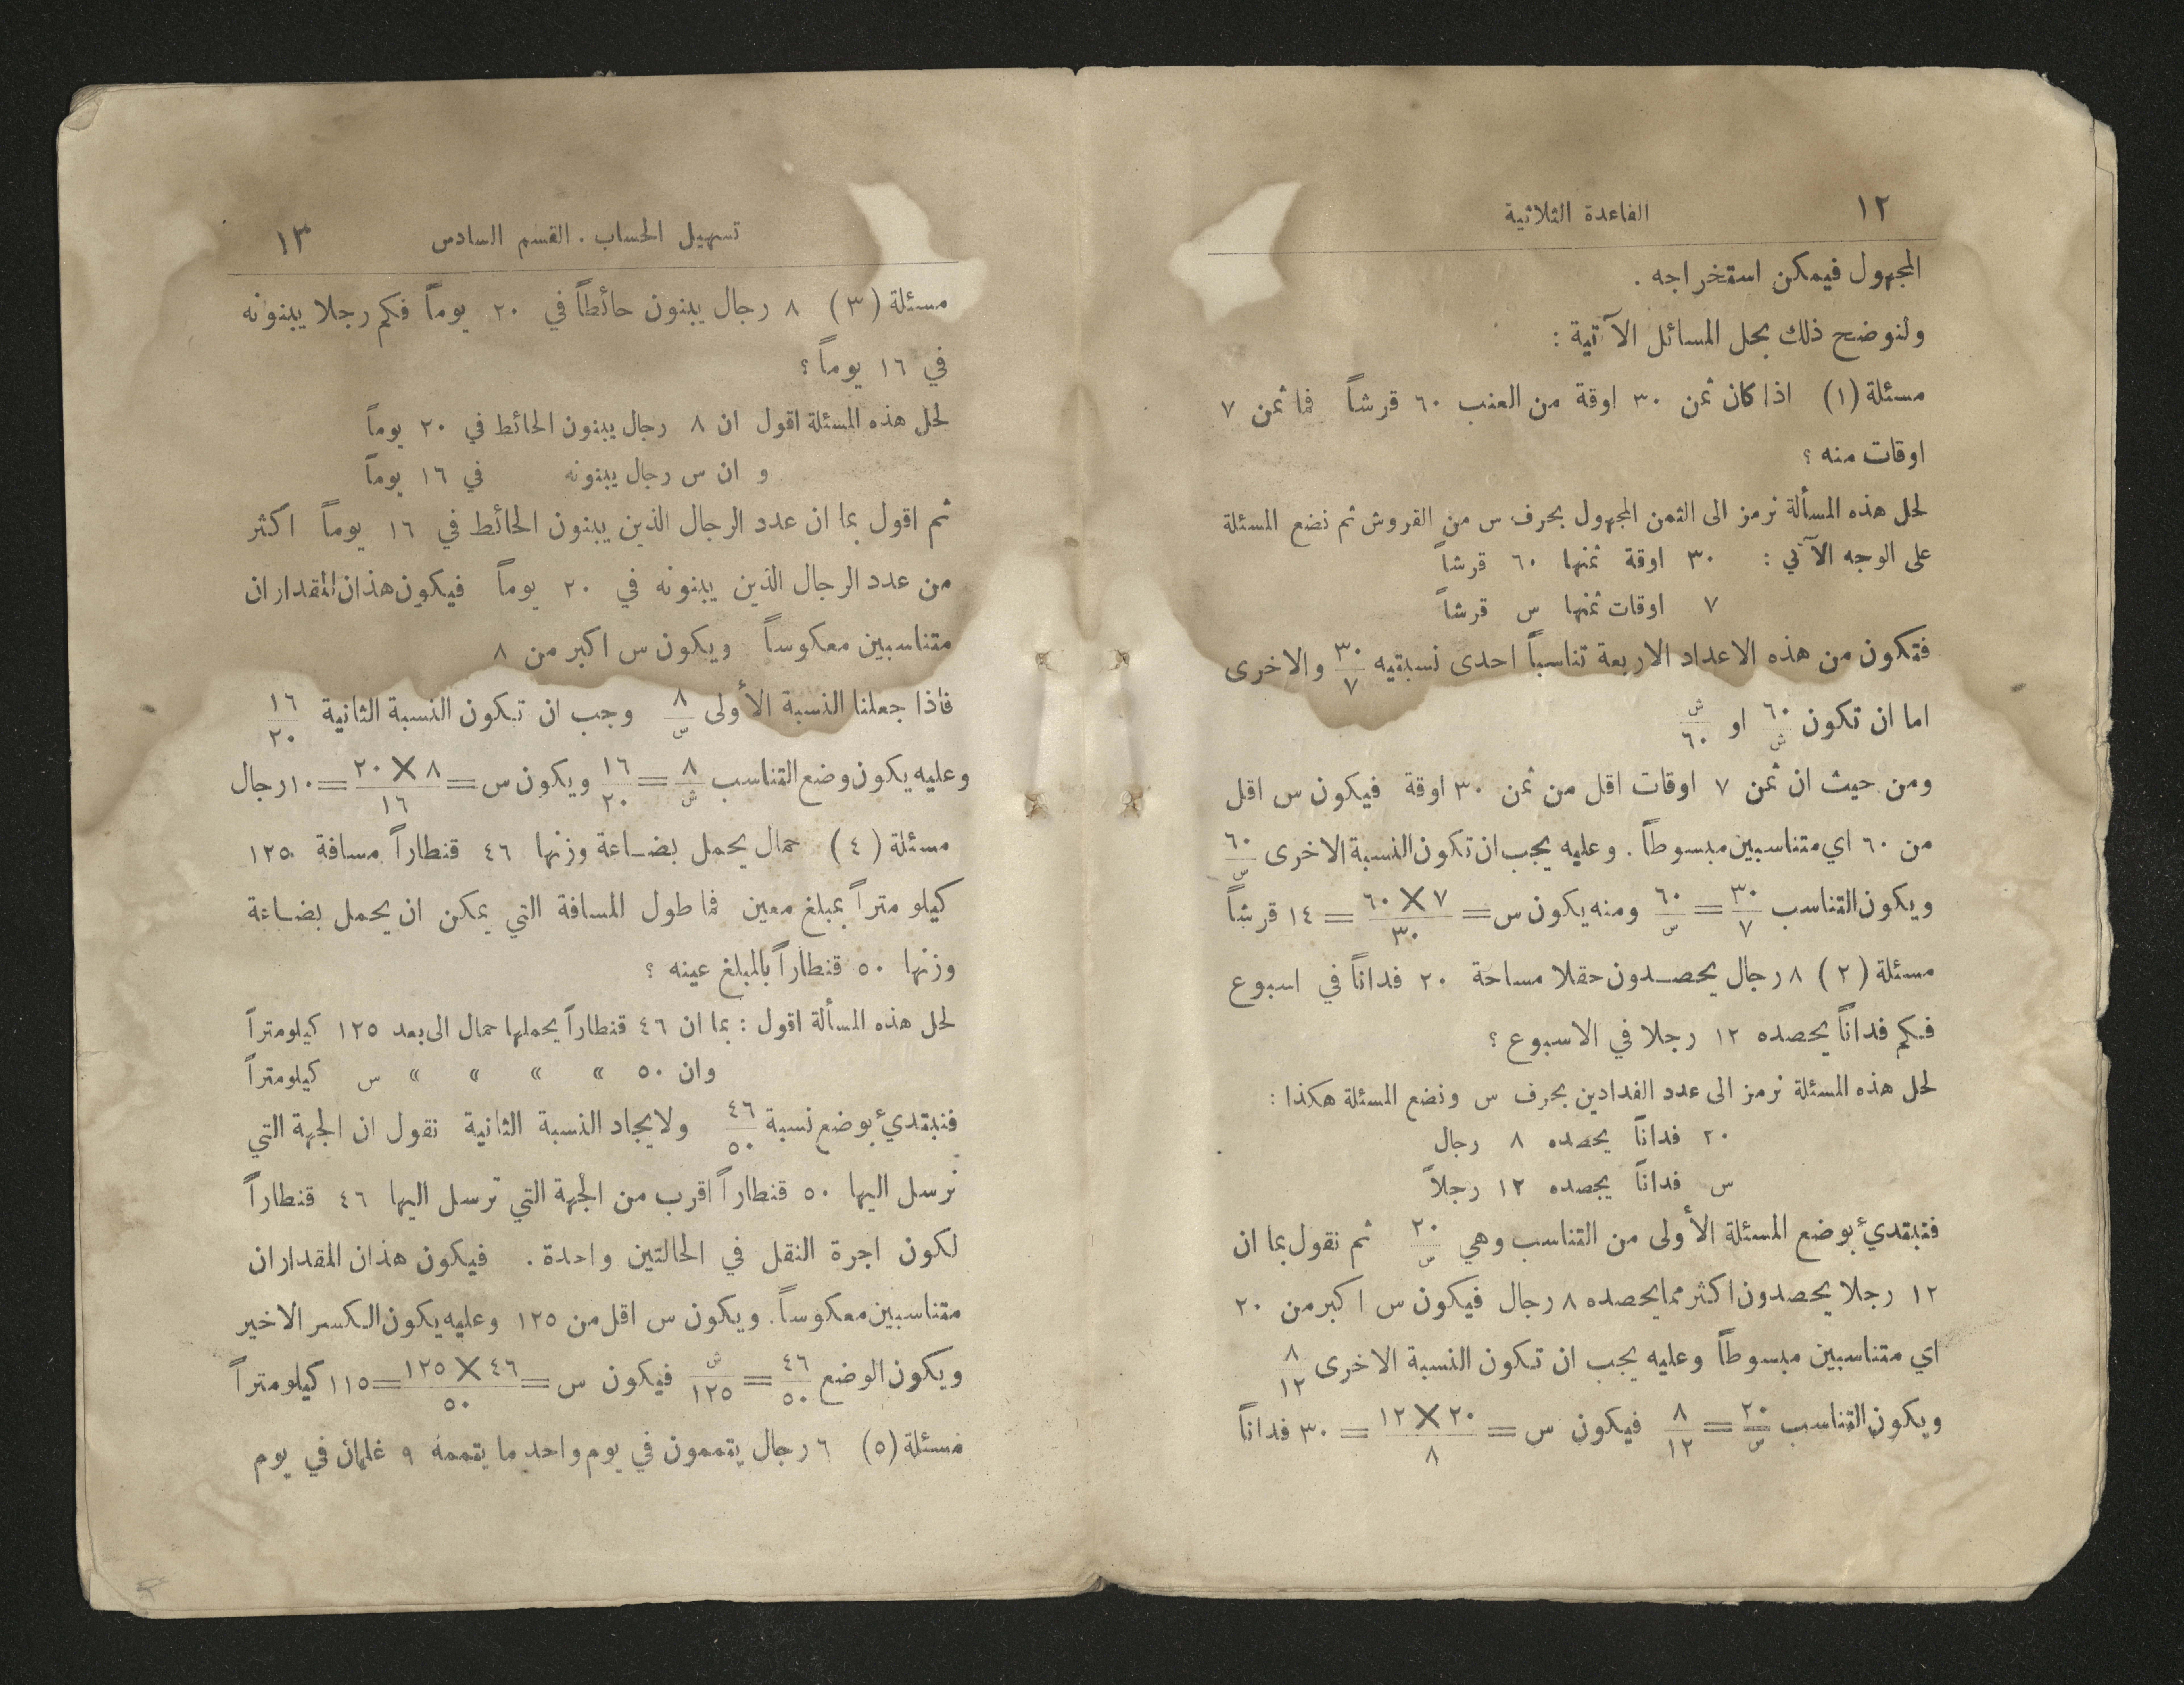 ١٢ القاعدة الثلاثية
المجهول فيمكن استخراجه .
ولنوضح ذلك بحل المسائل الآتية :
مسئلة (١) اذا كان ثمن ٣٠ اوقة من العنب ٦٠ قرشاً فما ثمن ٧
اوقات منه ؟
لحل هذه المسألة نرمز الى الثمن المجهول بحرف س من القروش ثم نضع المسئلة
على الوجه الآتي : ٣٠ اوقة ثمنها ٦٠ قرشاً
٧ اوقات ثمنها س قرشاً
فتكون من هذه الاعداد الاربعة تناسباً احدى نسبتيه ٣٠/٧ والاخرى
اما ان تكون ٦٠/س او س/٦٠
ومن حيث ان ثمن ٧ اوقات اقل من ثمن ٣٠ اوقة فيكون س اقل
من ٦٠ اي متناسبين مبسوطاً . وعليه يجب ان تكون النسبة الاخرى ٦٠/س
ويكون التناسب ٣٠/٧ = ٦٠/س ومنه يكون س = ٧ × ٦٠/٣٠ = ١٤ قرشاً
مسئلة (٢) ٨ رجال يحصدون حقلا مساحة ٢٠ فداناً في اسبوع
فكم فداناً يحصده ١٢ رجلا في الاسبوع ؟
لحل هذه المسئلة نرمز الى عدد الفدادين بحرف س ونضع المسئلة هكذا :
٢٠ فداناً يحصده ٨ رجال
س فداناً يحصده ١٢ رجلاً
فنبتدئ بوضع المسئلة الأولى من التناسب وهي ٢٠/س ثم نقول بما ان
١٢ رجلا يحصدون اكثر مما يحصده ٨ رجال فيكون س اكبر من ٢٠
اي متناسبين مبسوطاً وعليه يجب ان تكون النسبة الاخرى ٨/١٢
ويكون التناسب ٢٠/س = ٨/١٢ فيكون س = ٢٠ × ١٢/٨ = ٣٠ فداناً
تسهيل الحساب . القسم السادس ١٣
مسئلة (٣) ٨ رجال يبنون حائطاً في ٢٠ يوماً فكم رجلا يبنونه
في ١٦ يوماً ؟
لحل هذه المسئلة اقول ان ٨ رجال يبنون الحائط في ٢٠ يوماً
و ان س رجال يبنونه في ١٦ يوماً
ثم اقول بما ان عدد الرجال الذين يبنون الحائط في ١٦ يوماً اكثر
من عدد الرجال الذين يبنونه في ٢٠ يوماً فيكون هذان المقداران
متناسبين معكوساً ويكون س اكبر من ٨
فاذا جعلنا النسبة الأولى ٨/س وجب ان تكون النسبة الثانية ١٦/٢٠
وعليه يكون وضع التناسب ٨/س = ١٦/٢٠ ويكون س = ٨ × ٢٠/١٦ = ١٠ رجال
مسئلة (٤) حمال يحمل بضاعة وزنها ٤٦ قنطاراً مسافة ١٢٥
كيلو متراً بمبلغ معين فما طول المسافة التي يمكن ان يحمل بضاعة
وزنها ٥٠ قنطاراً بالمبلغ عينه ؟
لحل هذه المسألة اقول : بما ان ٤٦ قنطاراً يحملها حمال الى بعد ١٢٥ كيلومتراً
وان ٥٠ » » » » س كيلومتراً
فنبتدئ بوضع نسبة ٤٦/٥٠ ولايجاد النسبة الثانية نقول ان الجهة التي
نرسل اليها ٥٠ قنطاراً اقرب من الجهة التي نرسل اليها ٤٦ قنطاراً
لكون اجرة النقل في الحالتين واحدة . فيكون هذان المقداران
متناسبين معكوساً . ويكون س اقل من ١٢٥ وعليه يكون الكسر الاخير
ويكون الوضع ٤٦/٥٠ = س/١٢٥ فيكون س = ٤٦ × ١٢٥/٥٠ = ١١٥ كيلومتراً
مسئلة (٥) ٦ رجال يتممون في يوم واحد ما يتممه ٩ غلمان في يوم